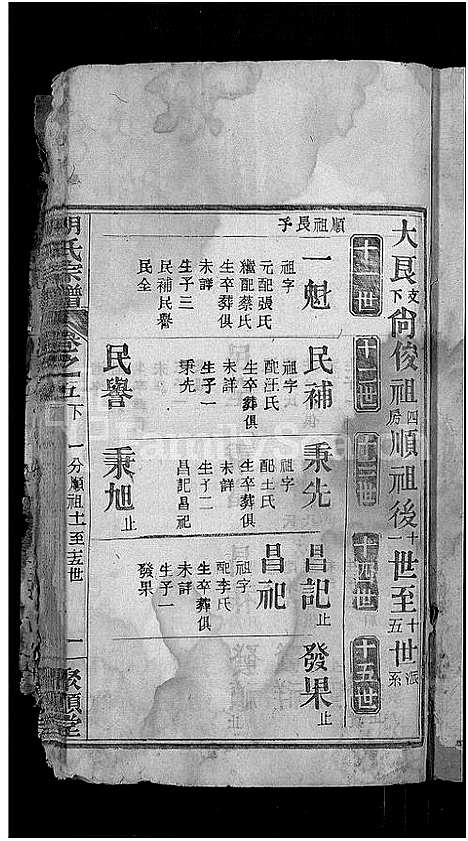 大良支下尙俊祖四房順祖後十一世至十五世派系
十一世
十二世
十三世
十四世
十五世
順祖長子
一魁
祖字
元配張氏
繼配蔡氏
生卒葬俱
未詳
生子三
民補民譽
民全
民補
祖字
配汪氏
生卒葬俱
未詳
生子一
秉先
秉先
祖字
配王氏
生卒葬俱
未詳
生子二
昌記昌祀
昌記止
發果止
昌祀
祖字
配李氏
生卒葬俱
未詳
生子一
發果
民譽
秉旭止
胡氏宗譜
卷之五下
一分順祖十一至十五世
一
聚順堂
FamilySearch